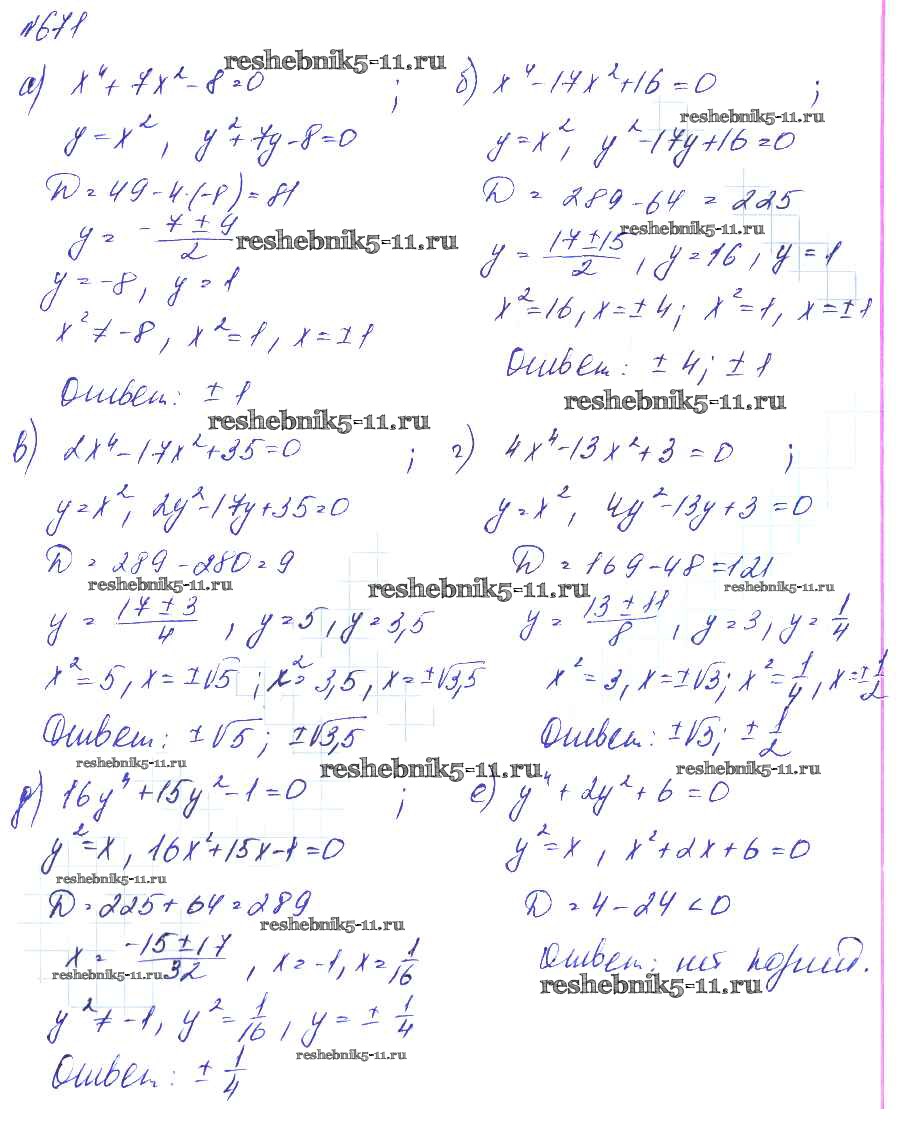 №671
reshebnik5-11.ru
а) x⁴+7x²-8=0 ;
y=x², y²+7y-8=0
D=49-4·(-8)=81
y = -7±9/2 reshebnik5-11.ru
y=-8, y=1
x²≠-8, x²=1, x=±1
Ответ: ±1
reshebnik5-11.ru
б) x⁴-17x²+16=0 ;
reshebnik5-11.ru
y=x², y²-17y+16=0
D = 289-64 = 225
reshebnik5-11.ru
y = 17±15/2, y=16, y=1
x²=16, x=±4; x²=1, x=±1
Ответ: ±4; ±1
reshebnik5-11.ru
в) 2x⁴-17x²+35=0 ;
y=x², 2y²-17y+35=0
D=289-280=9
reshebnik5-11.ru
y = 17±3/4, y=5, y=3,5
x²=5, x=±√5; x²=3,5, x=±√3,5
Ответ: ±√5; ±√3,5
reshebnik5-11.ru
г) 4x⁴-13x²+3=0 ;
y=x², 4y²-13y+3=0
D=169-48=121
reshebnik5-11.ru reshebnik5-11.ru
y = 13±11/8, y=3, y=1/4
x²=3, x=±√3; x²=1/4, x=±1/2
Ответ: ±√3; ±1/2
reshebnik5-11.ru reshebnik5-11.ru
д) 16y⁴+15y²-1=0 ;
y²=x, 16x²+15x-1=0
reshebnik5-11.ru
D=225+64=289
reshebnik5-11.ru
x = -15±17/32, x=-1, x=1/16
reshebnik5-11.ru
y²≠-1, y²=1/16, y=±1/4
reshebnik5-11.ru
Ответ: ±1/4
е) y⁴+2y²+6=0
y²=x, x²+2x+6=0
D=4-24<0
Ответ: нет корней.
reshebnik5-11.ru